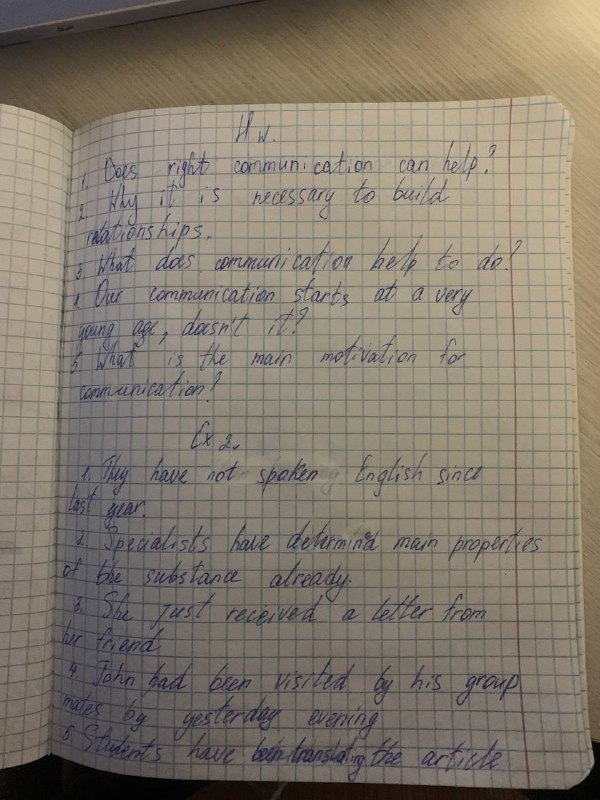 H w.
1. Does right communication can help?
2. Why it is necessary to build
relationships.
3. What does communication help to do?
4. Our communication starts at a very
young age, doesn't it?
5 What is the main motivation for
communication?
Ex 2.
1. They have not spoken English since
last year.
2. Specialists have determined main properties
of the substance already.
3. She just received a letter from
her friend
4 John had been visited by his group
mates by yesterday evening
5 Students have been translating the article